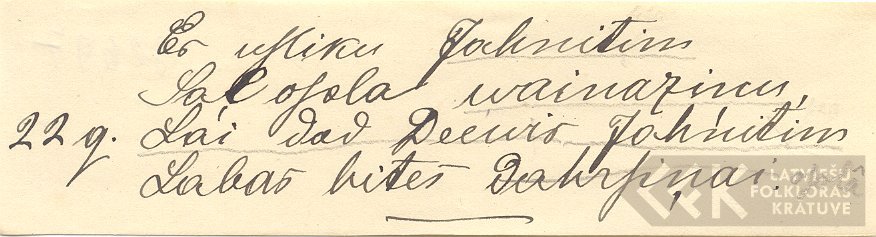 Es usliku Jahnitim
Sal osola wainazinu,
22 g. Lái dod Deewis Jáhnitim
Labas bites Dahrsiņai.
LATVIEŠU
FOLKLORAS
KRĀTUVE